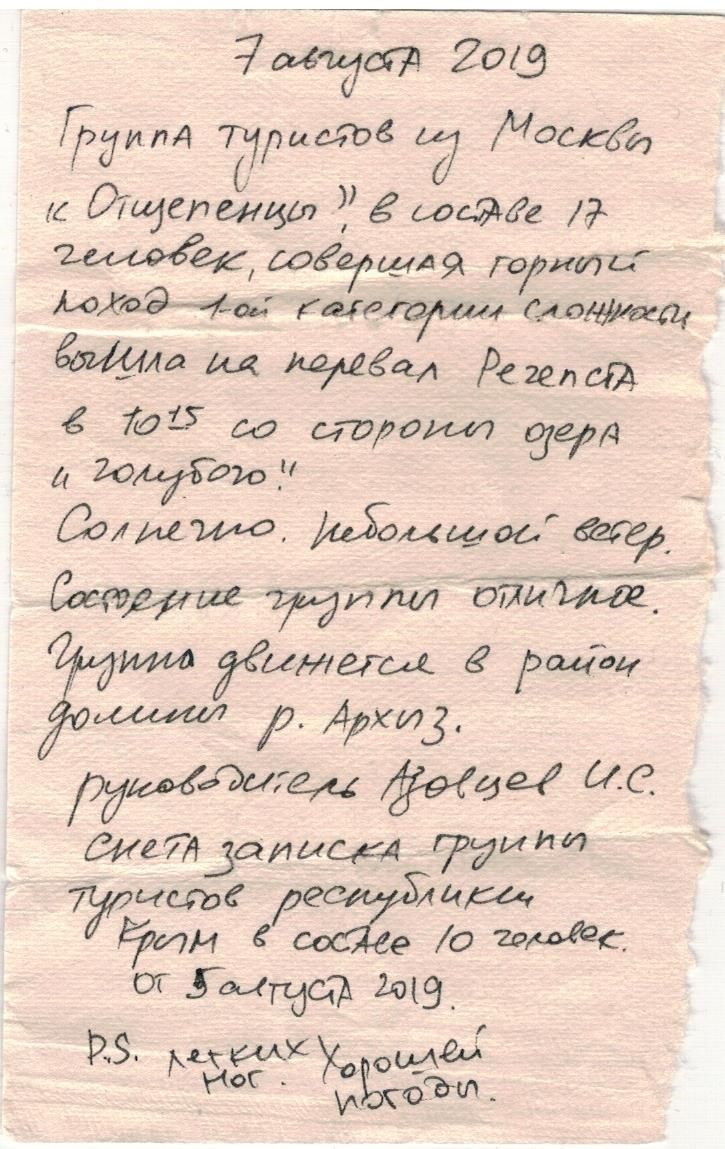 7 августа 2019
Группа туристов из Москвы
"Отщепенцы", в составе 17
человек, совершая горный
поход 1-ой категории сложности
вышла на перевал Речепста
в 10 15 со стороны озера
"Голубого".
Солнечно. Небольшой ветер.
Состояние группы отличное.
Группа движется в район
долины р. Архыз.
руководитель Азовцев И.С.
снета записка группы
туристов республики
Крым в составе 10 человек.
от 5 августа 2019.
P.S. легких Хорошей
ног. погоды.